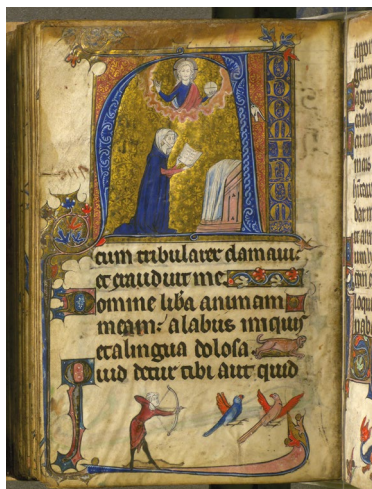 AD DOMINUM
cum tribularer clamaui:
et exaudiuit me.
Domine liba animam
meam: a labiis iniquis
et a lingua dolosa.
Quid detur tibi aut quid